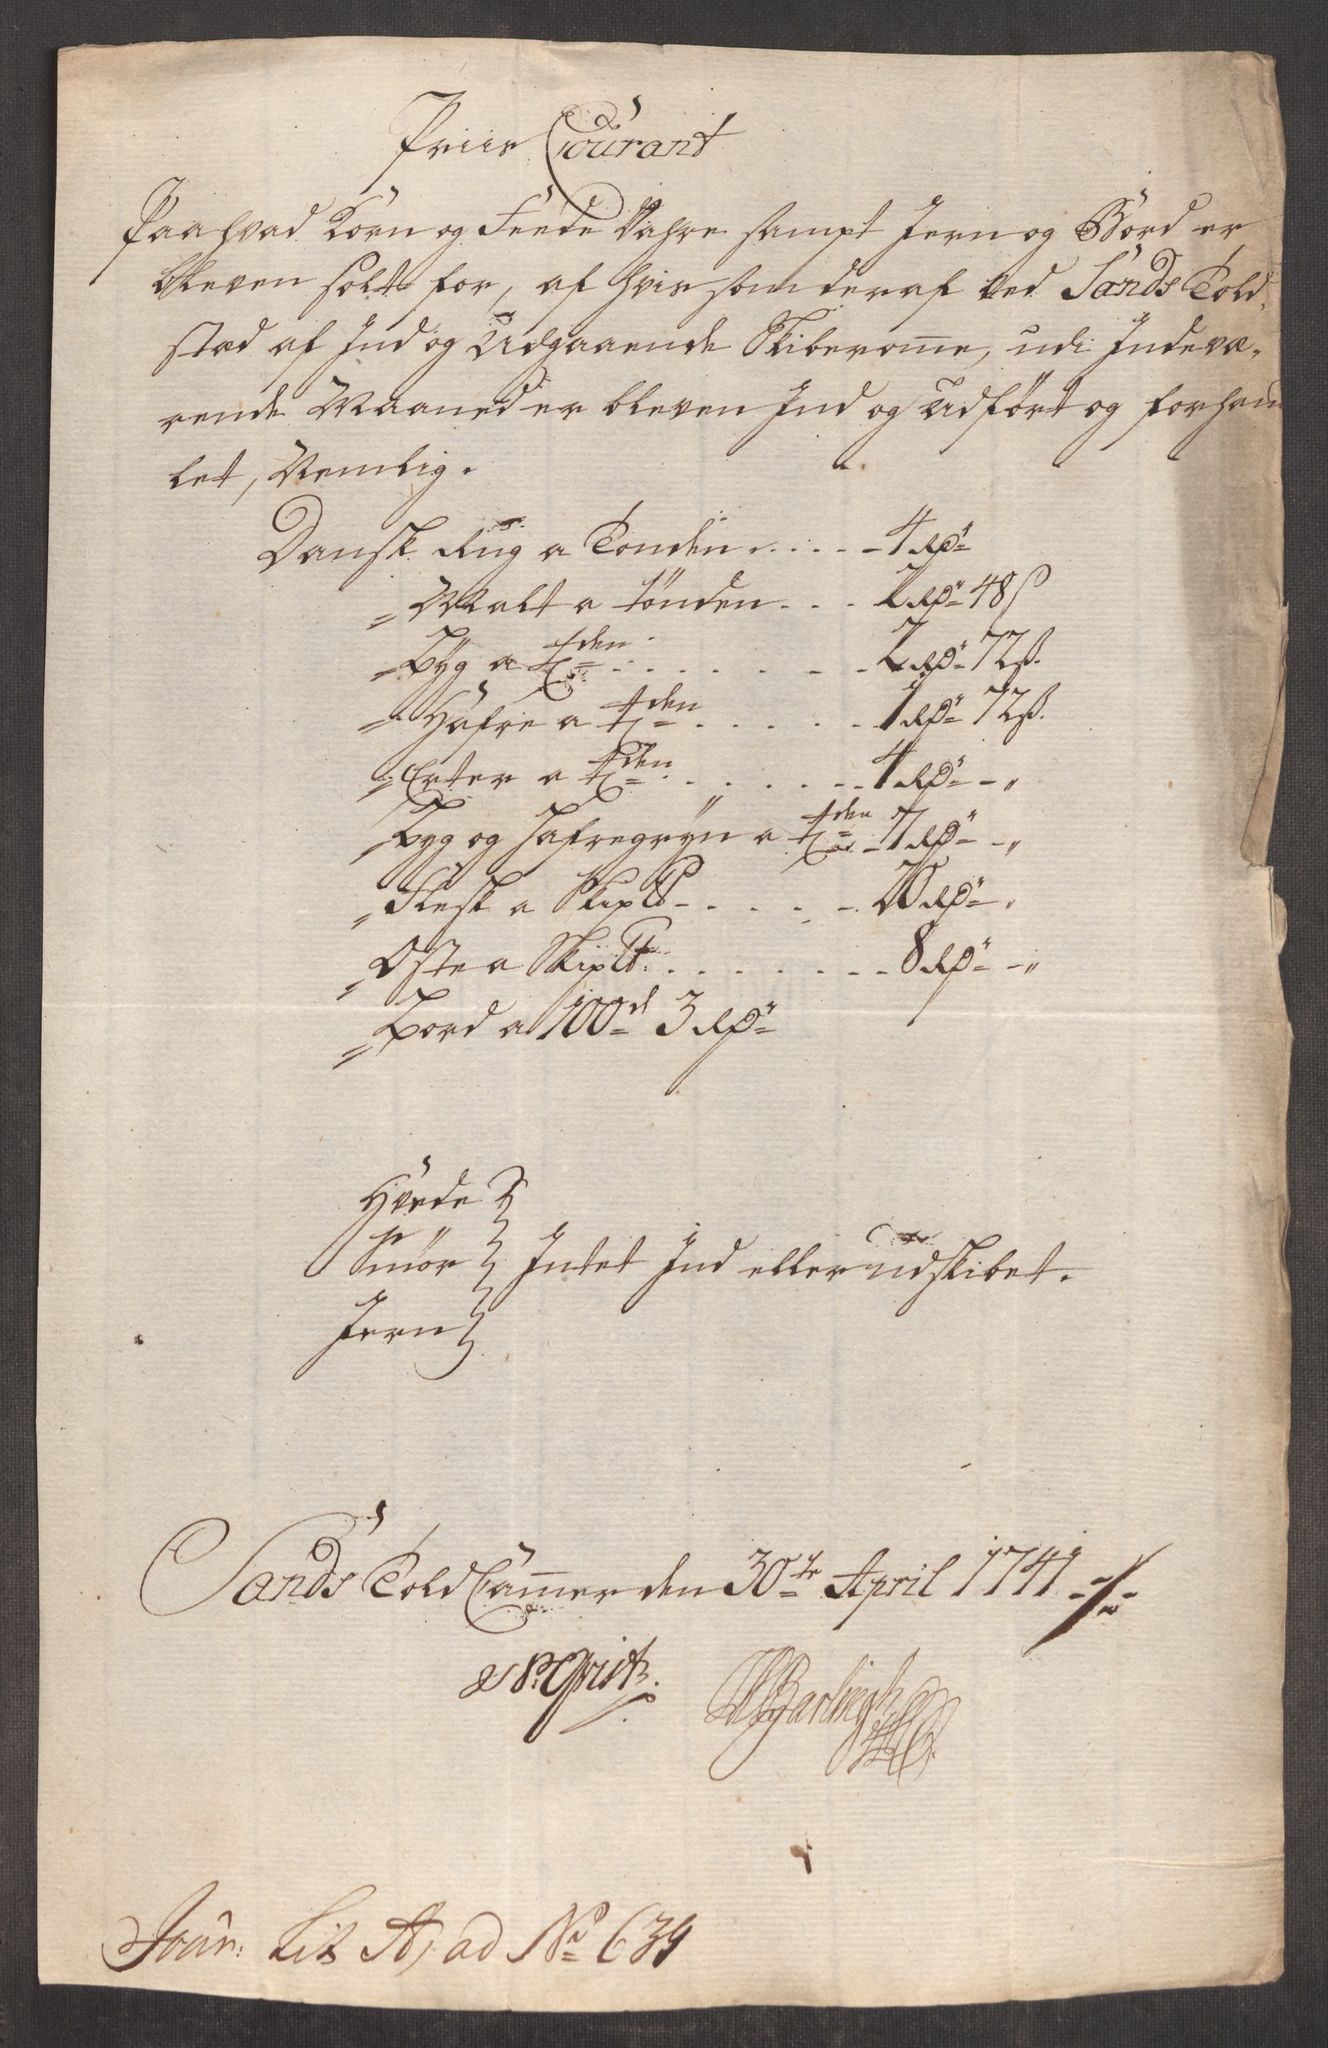 Priis Courant
Paa hvad Korn og Feede Vahre sampt Jern og Bord er
bleven solt for, af hvis som deraf ved Sands Told,
stæd af Ind og Udgaaende Skiberome, udi Indevæ,
rende Maaned er bleven Ind og Udført og forhan
let, Nemlig.
Dansk Rug a Tonden . . . . . 4 Rdr
" Malt a tønden . . . 2 Rdr 48 s
" Byg a Tden . . . . . 2 Rdr 72 s.
" Hafre a Tden . . . . . 1 Rdr 72 s.
" Erter a Tden . . . . . 4 Rdr - "
" Byg og Hafregryn a Tden - 7 Rdr - "
" Flesk a Skip ℔ - . . . . 20 Rdr - "
" Oste a Skip ℔ . . . . . . 8 Rdr - "
" Bord a 100d 3 Rdr
Hvede
Smör } Intet Ind eller udskibet.
Jern
Sands Told Cammer den 30te April 1741
Jour: Lit A, ad No 639